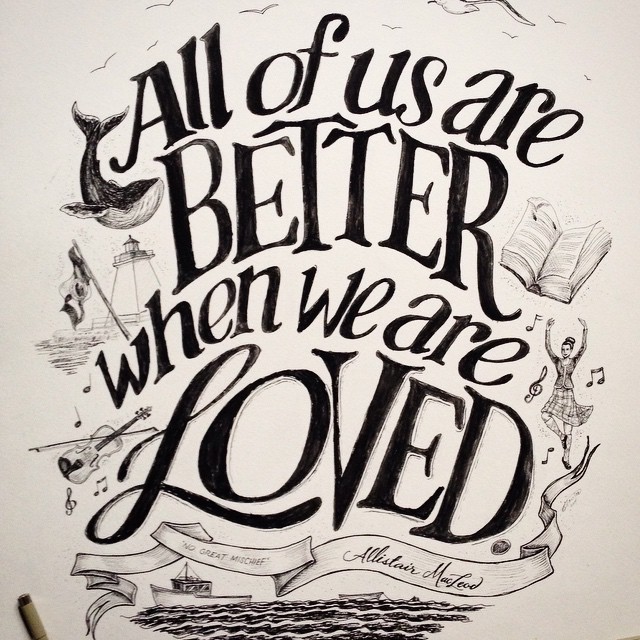 All of us are
BETTER
when we are
LOVED.
"NO GREAT MISCHIEF"
Allistair MacLeod